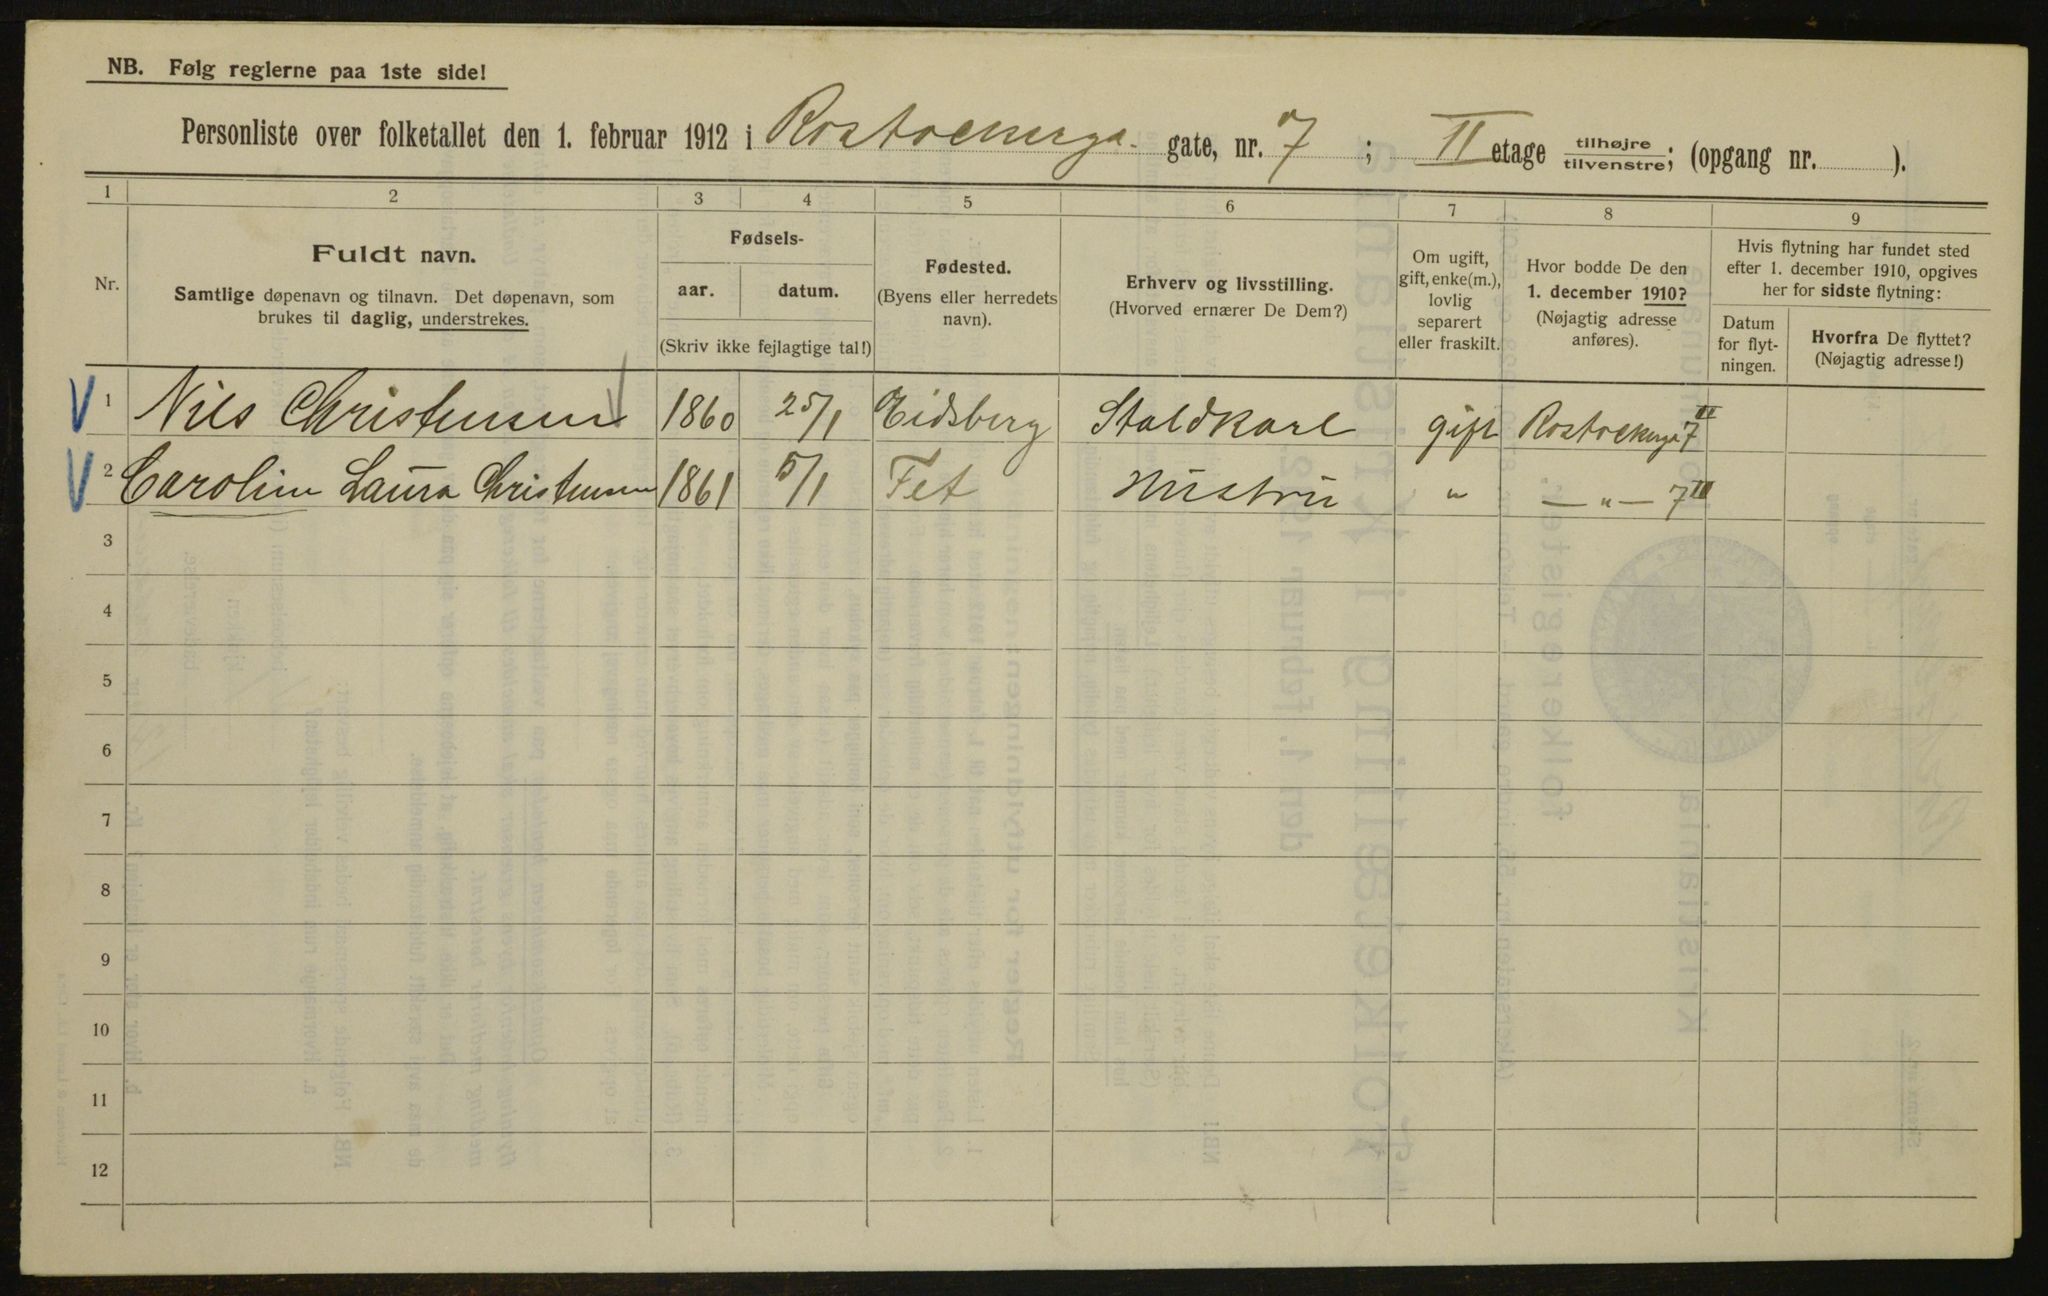 NB. Følg reglerne paa 1ste side!
Personliste over folketallet den 1. februar 1912 i Rostockerga. gate, nr. 7 ; II etage tilhøjre tilvenstre; (opgang nr. ).
1 2 3 4 5 6 7 8 9
Nr.
Fuldt navn.
Samtlige døpenavn og tilnavn. Det døpenavn, som
brukes til daglig, understrekes.
Fødsels-
aar. datum.
(Skriv ikke fejlagtige tal!)
Fødested.
(Byens eller herredets
navn).
Erhverv og livsstilling.
(Hvorved ernærer De Dem?)
Om ugift,
gift, enke(m.),
lovlig
separert
eller fraskilt.
Hvor bodde De den
1. december 1910?
(Nøjagtig adresse
anføres).
Hvis flytning har fundet sted
efter 1. december 1910, opgives
her for sidste flytning:
Datum
for flyt-
ningen.
Hvorfra De flyttet?
(Nøjagtig adresse!)
V 1 Nils Christensen 1860 25/1 Eidsberg Staldkarl gift Rostockerga 7 III
V 2 Carolin Laura Christensen 1861 5/1 Fet Hustru " — " — 7 III
3
4
5
6
7
8
9
10
11
12